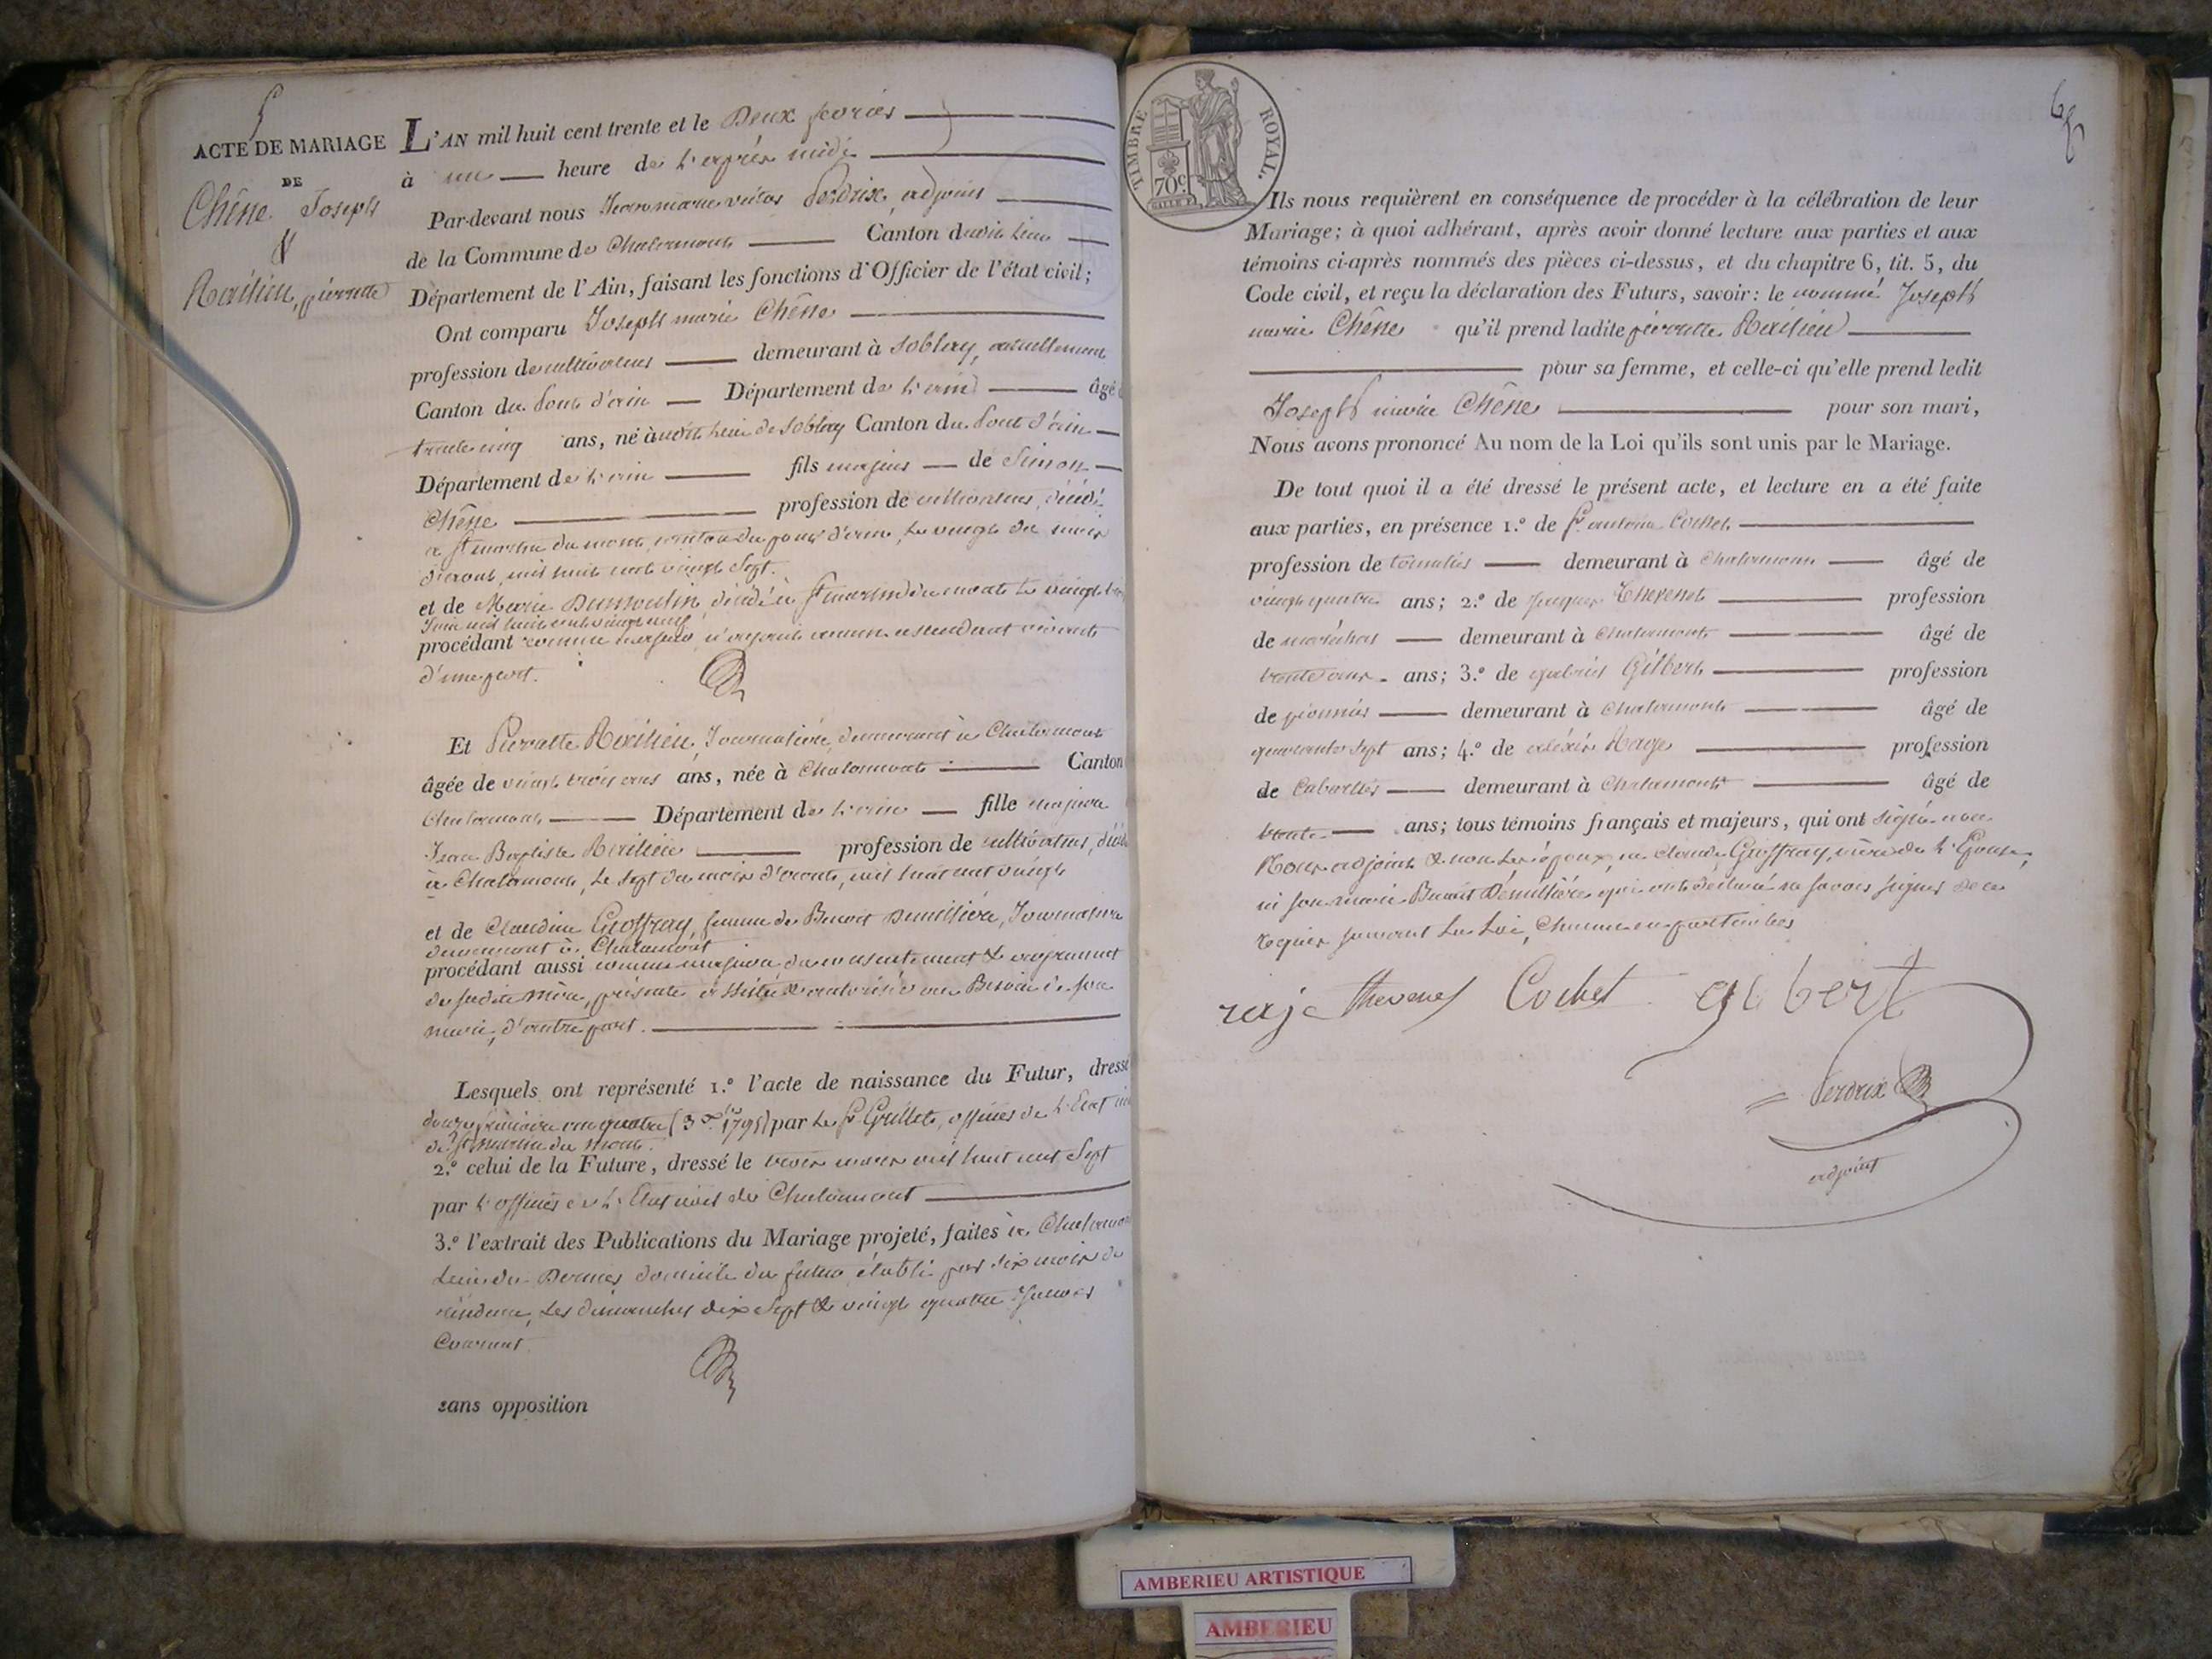 5
ACTE DE MARIAGE
DE
Chêne Joseph
&
pierrette
L'AN mil huit cent trente et le Deux fevrier
à une heure de l'après midi
Par-devant nous Perdrix adjoint
de la Commune de Chalamont Canton dudit lieu
Département de l'Ain, faisant les fonctions d'Officier de l'état civil;
Ont comparu Joseph marie Chêne
profession de cultivateur demeurant à Soblay, actuellement
Canton du Pont d'ain Département de l'ain âgé
trente cinq ans, né audit lieu de Soblay Canton du Pont d'ain
Département de l'ain fils majeur de Simon
Chêne profession de cultivateur, décédé
a St martin du mont, canton du pont d'ain, le vingt du mois
d'aout, mil huit cent vingt Sept.
et de Marie Dumoulin décédée à St martin du mont le vingt
Juin mil huit cent vingt neuf
procédant comme majeur n'ayant aucun ascendant vivant
d'une part.
Et Pierrette Journalière, demeurant à Chalamont
âgée de vingt trois ans ans, née à Chalamont Canton
Chalamont Département de l'ain fille majeure
Jean Baptiste profession de cultivateur, décédé
à Chalamont, le Sept du mois d'aout, mil huit cent vingt
et de Claudine Geoffray, femme de Benoit Demillière, Journalière
demeurant à Chalamont
procédant aussi comme majeure du consentement & agrément
de sadite mère, présente, assistée & autorisée au Besoin de son
mari, d'autre part.
Lesquels ont représenté 1.º l'acte de naissance du Futur, dressé
douze frimaire an quatre (3 Xbre 1795) par le Sr Grillet, officier de l'Etat civil
de St Martin du Mont.
2.º celui de la Future, dressé le trois mars mil huit cent Sept
par l'officier de l'Etat civil de Chalamont
3.º l'extrait des Publications du Mariage projeté, faites à Chalamont
Lieu du Dernier domicile du futur établi par six mois de
résidence, Les dimanches dix Sept & vingt quatre Janvier
Courant.
sans opposition
TIMBRE ROYAL.
70c
Ils nous requièrent en conséquence de procéder à la célébration de leur
Mariage; à quoi adhérant, après avoir donné lecture aux parties et aux
témoins ci-après nommés des pièces ci-dessus, et du chapitre 6, tit. 5, du
Code civil, et reçu la déclaration des Futurs, savoir: le nommé Joseph
marie Chêne qu'il prend ladite pierrette
pour sa femme, et celle-ci qu'elle prend ledit
Joseph marie Chêne pour son mari,
Nous avons prononcé Au nom de la Loi qu'ils sont unis par le Mariage.
De tout quoi il a été dressé le présent acte, et lecture en a été faite
aux parties, en présence 1.º de Sr antoine Cochet
profession de tonnelier demeurant à Chalamont âgé de
vingt quatre ans; 2.º de Jacques Thevenet profession
de maréchal demeurant à Chalamont âgé de
ans; 3.º de gabriel Gilbert profession
de pionnier demeurant à Chalamont âgé de
quarante Sept ans; 4.º de aléxis Raye profession
de Cabartier demeurant à Chalamont âgé de
trente ans; tous témoins français et majeurs, qui ont signé avec
Nous adjoint & non Les époux, ni Claudine Geoffray, mère de l'Epouse,
ni son mari Benoit Demillière qui ont déclaré ne savoir signer de ce
requis suivant La Loi, Chacun en particulier
raje thevenet Cochet gilbert
Perdrix
adjoint
AMBERIEU ARTISTIQUE
AMBERIEU